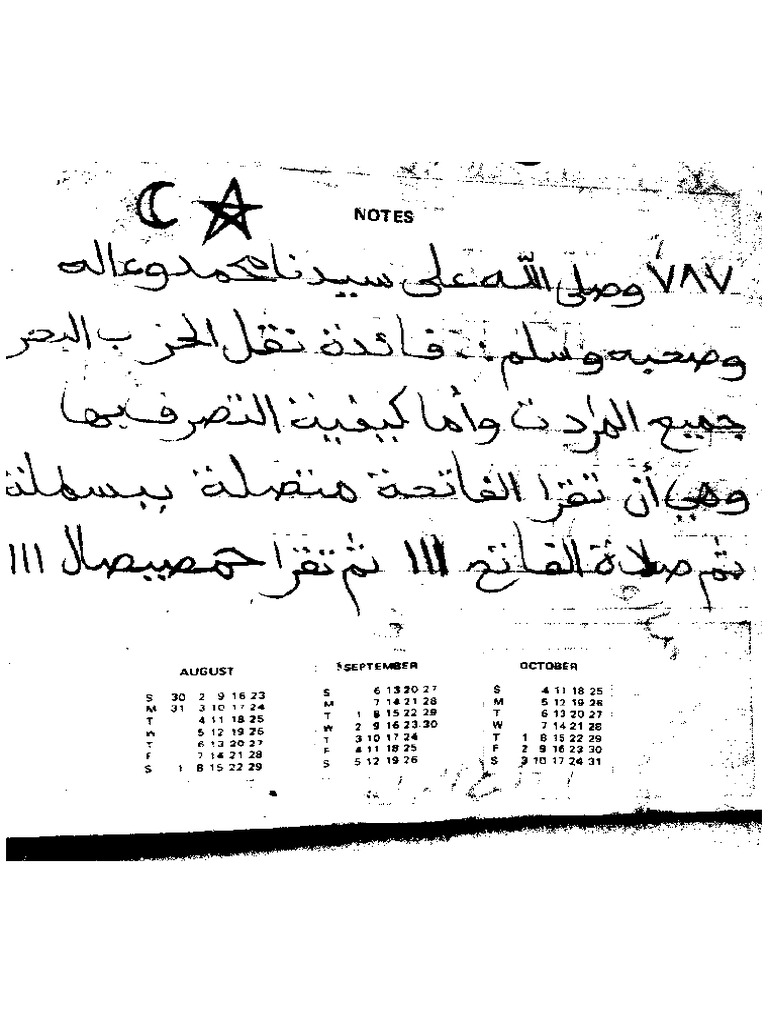 NOTES
٧٨٧ وصلى الله على سيدنا محمد وءاله
وصحبه وسلم :. فائدة نقل الحزب البحر
جميع المرادت وأما كيفية التصرف بها
وهي أن تقرا الفاتحة متصلة ببسملة
ثم صلاة الفاتح ااا ثم تقرا ااا
AUGUST SEPTEMBER OCTOBER
S 30 2 9 16 23 S 6 13 20 27 S 4 11 18 25
M 31 3 10 17 24 M 7 14 21 28 M 5 12 19 26
T 4 11 18 25 T 1 8 15 22 29 T 6 13 20 27
W 5 12 19 26 W 2 9 16 23 30 W 7 14 21 28
T 6 13 20 27 T 3 10 17 24 T 1 8 15 22 29
F 7 14 21 28 F 4 11 18 25 F 2 9 16 23 30
S 1 8 15 22 29 S 5 12 19 26 S 3 10 17 24 31